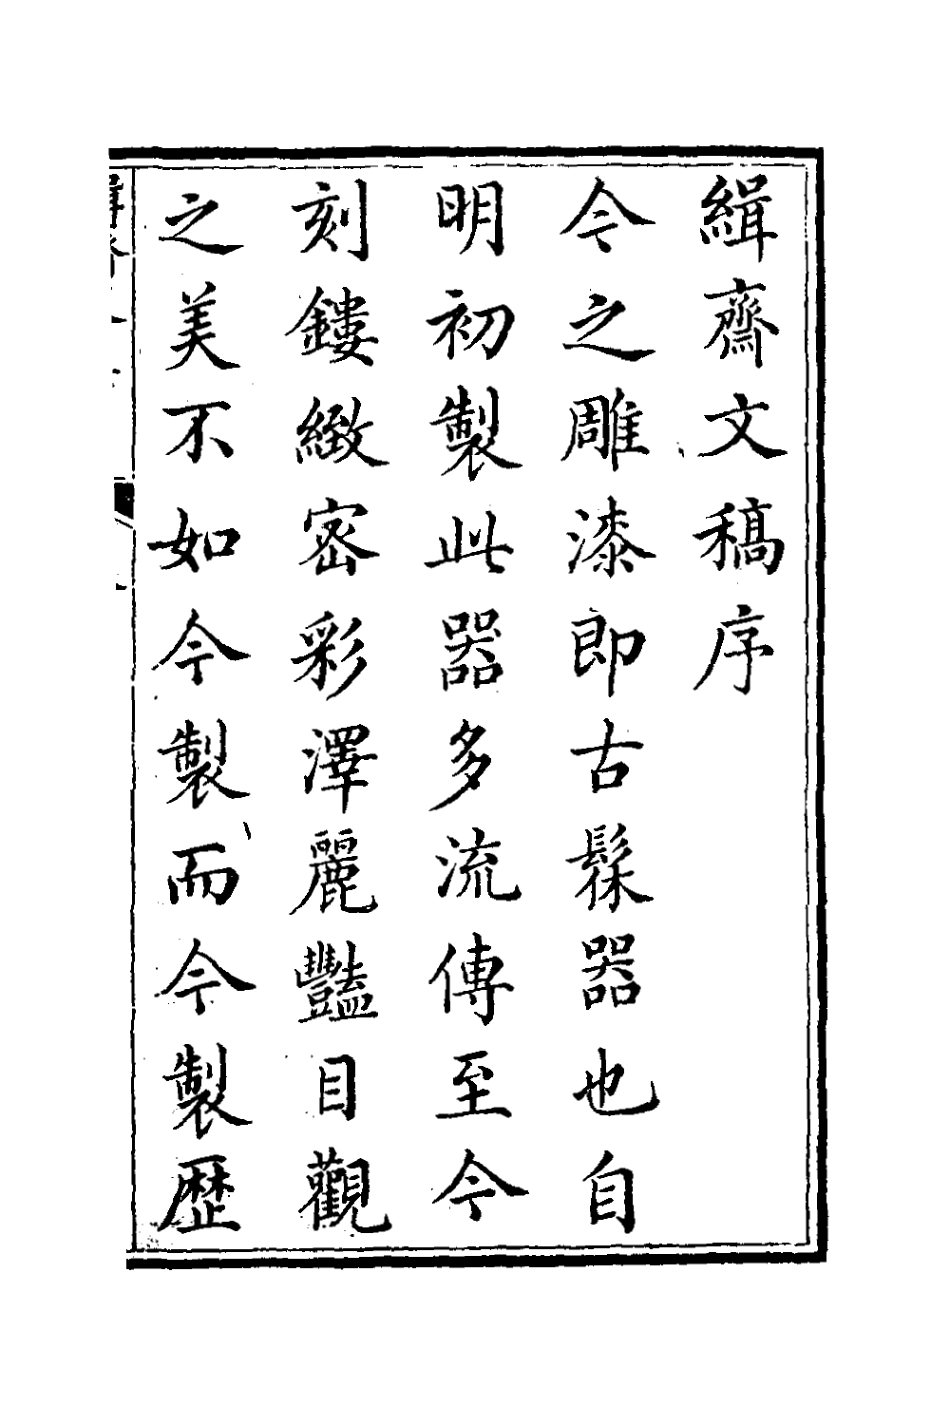 緝齋文稿序
今之雕漆即古髹器也自
明初製此器多流傳至今
刻鏤緻密彩澤麗豔目觀
之美不如今製而今製歷